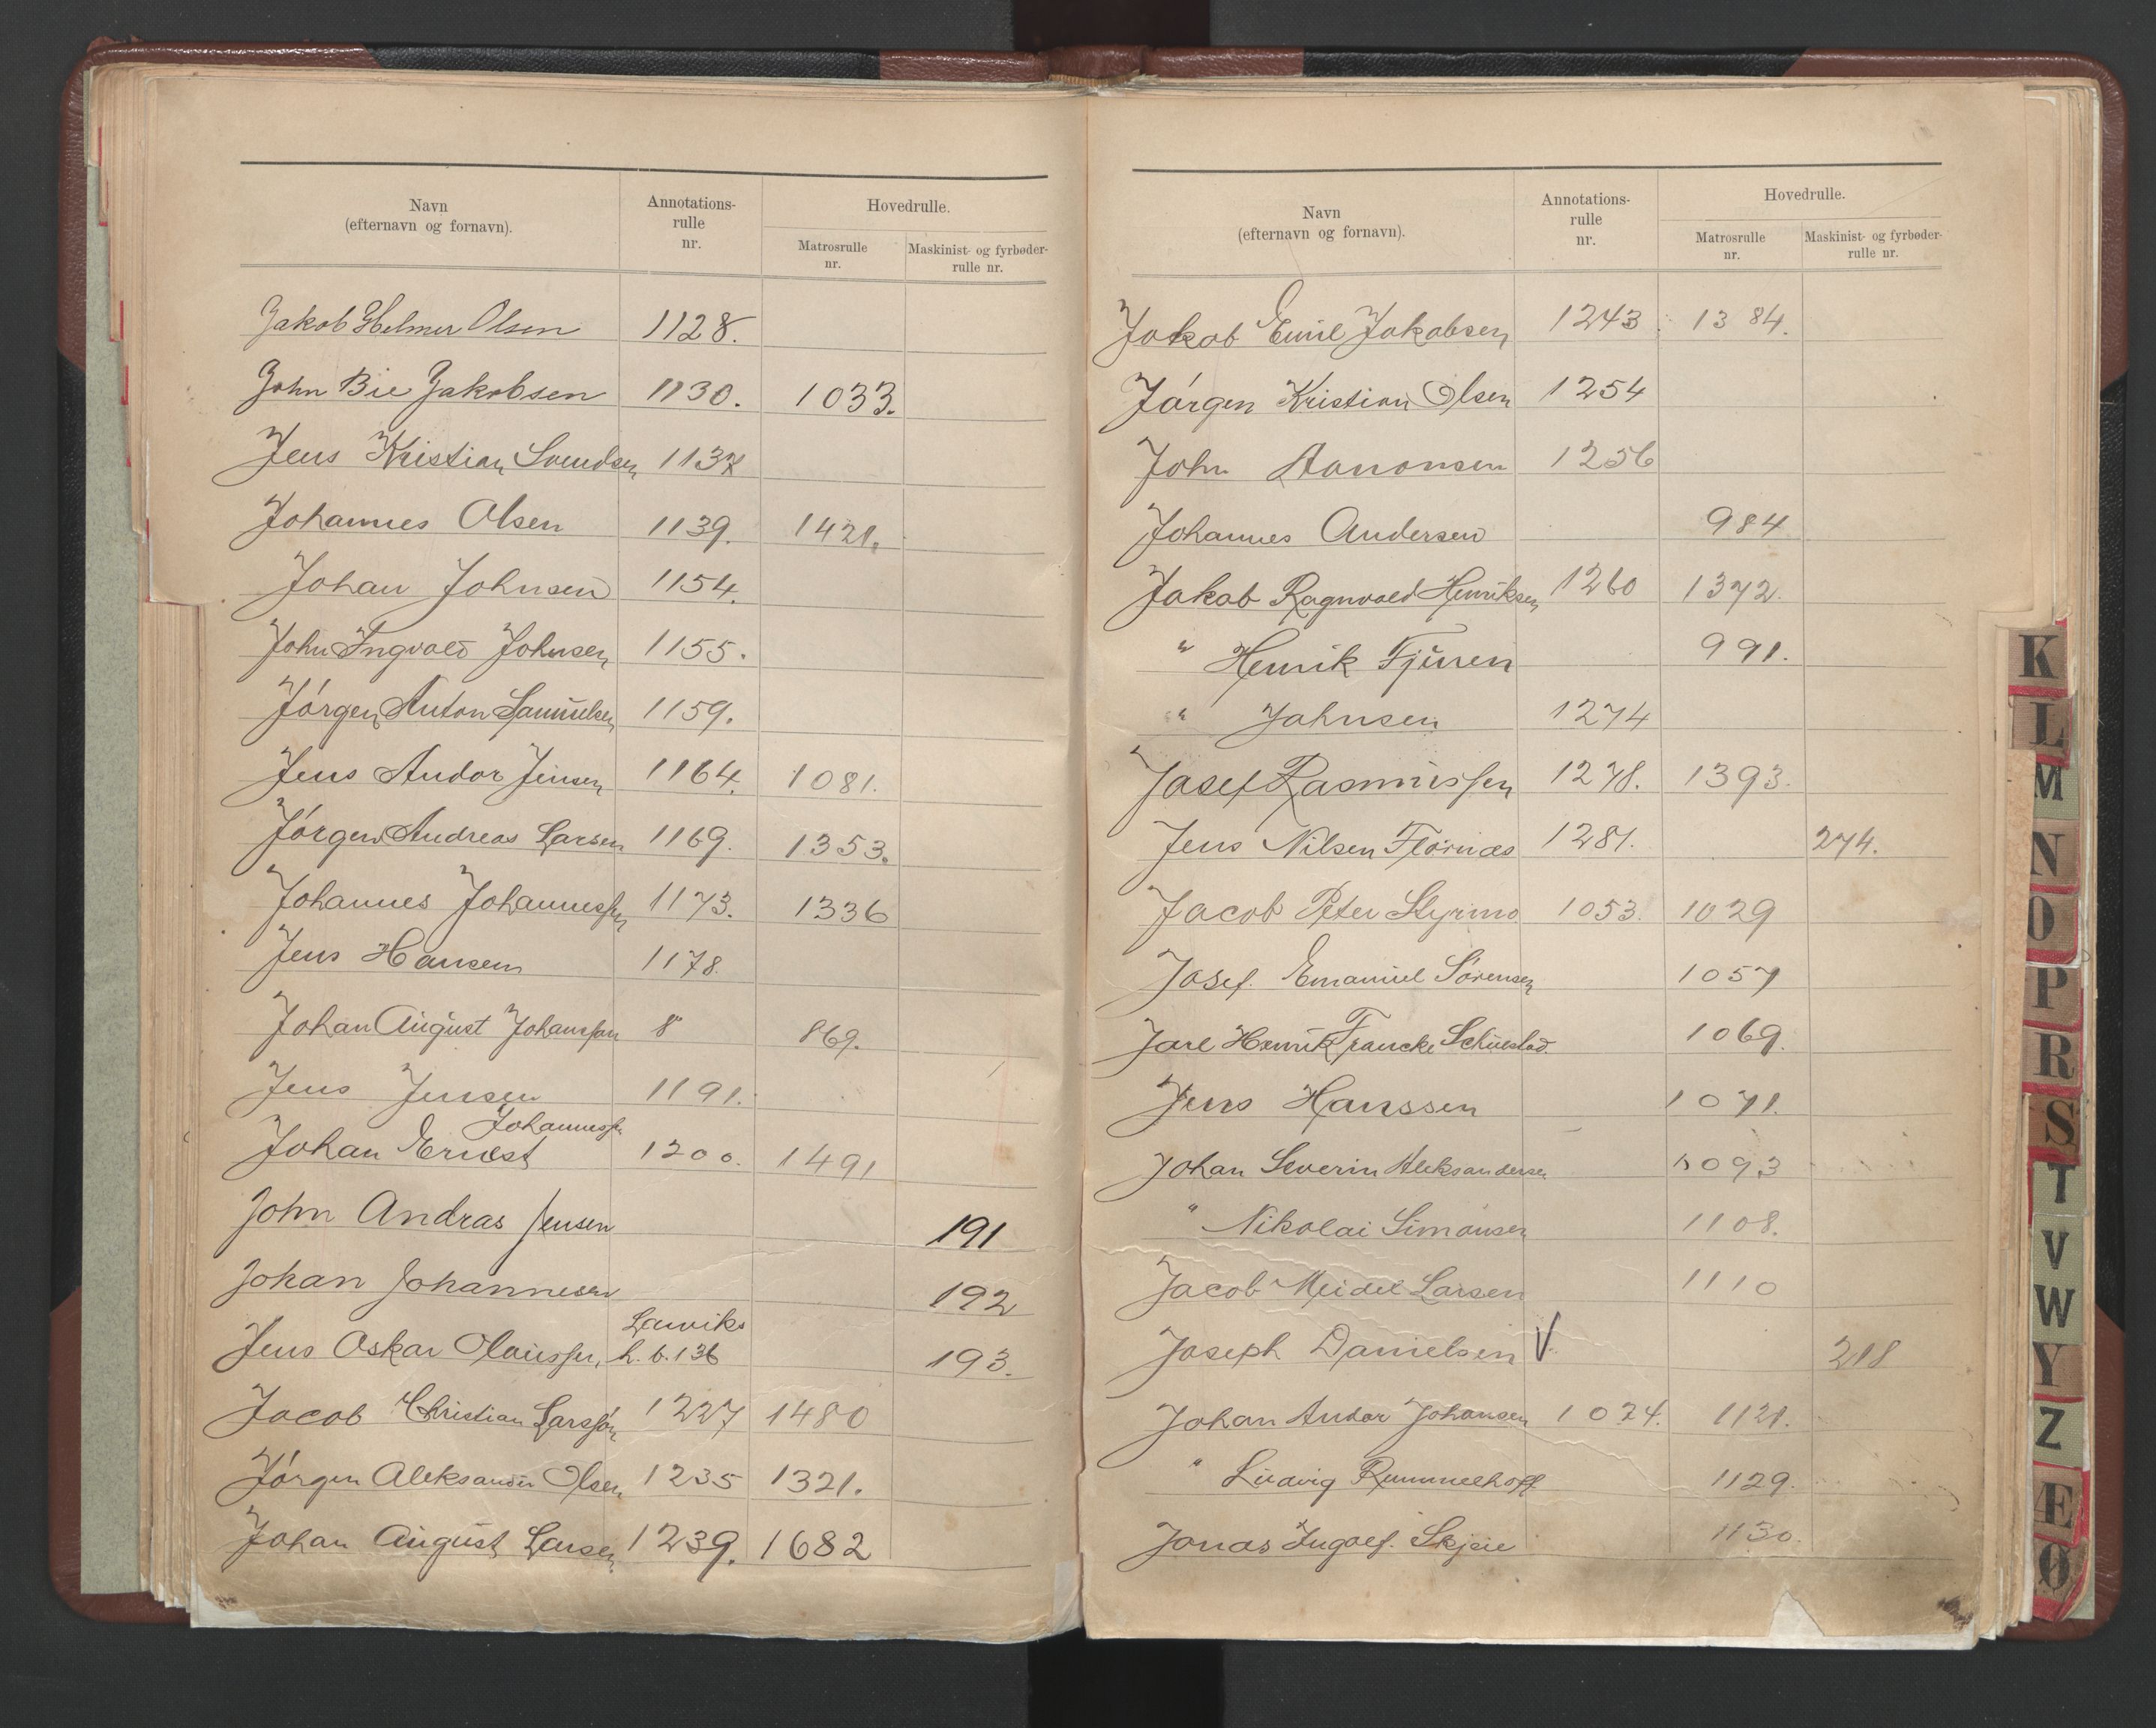 Navn (efternavn og fornavn). Annotations-rulle nr. Hovedrulle. Matrosrulle nr. Maskinist- og fyrbøder-rulle nr.
Jakob Helmer Olsen 1128.
John Bie Jakobsen 1130. 1033.
Jens Kristian Svendsen 1137
Johannes Olsen 1139. 1421.
Johan Johnsen 1154.
John Ingvald Johnsen 1155.
Jørgen Anton Samuelsen 1159.
Jens Andor Jensen 1164. 1081.
Jørgen Andreas Larsen 1169. 1353.
Johannes Johannessen 1173. 1336
Jens Hansen 1178.
Johan August Johanssen 8 869.
Jens Jensen 1191.
Johan Ernest Johannessen 1200. 1491
John Andras Jensen 191
Johan Johannesen 192
Jens Oskar Olaussen, Larviks h.b. 136 193.
Jacob Christian Larssøn 1227 1480
Jørgen Aleksander Olsen 1235 1321.
Johan August Larsen 1239. 1682
Navn (efternavn og fornavn). Annotations-rulle nr. Hovedrulle. Matrosrulle nr. Maskinist- og fyrbøder-rulle nr.
Jakob Emil Jakobsen 1243 1384.
Jørgen Kristian Olsen 1254
John Aanonsen 1256
Johannes Andersen 984
Jakob Ragnvald Henriksen 1260 1372.
" Henrik Fjüren 991.
" Johnsen 1274
Josef Rasmussen 1278. 1393.
Jens Nilsen Flørnæs 1281. 274.
Jacob Peter Styrmo 1053. 1029
Josef. Emanuel Sørensen 1057
Jarl Henrik Francke 1069.
Jens Hanssen 1071.
Johan Severin Aleksandersen 1093
" Nikolai Simonsen 1108.
Jacob Meidel Larsen 1110
Joseph Danielsen V. 218
Johan Andor Johansen 1074. 1121.
" Ludvig Rummelhoff 1129.
Jonas Ingolf. Skjeie 1130.
K
L
M
N
O
P
R
S
T
V
W
Y
Z
Æ
Ø